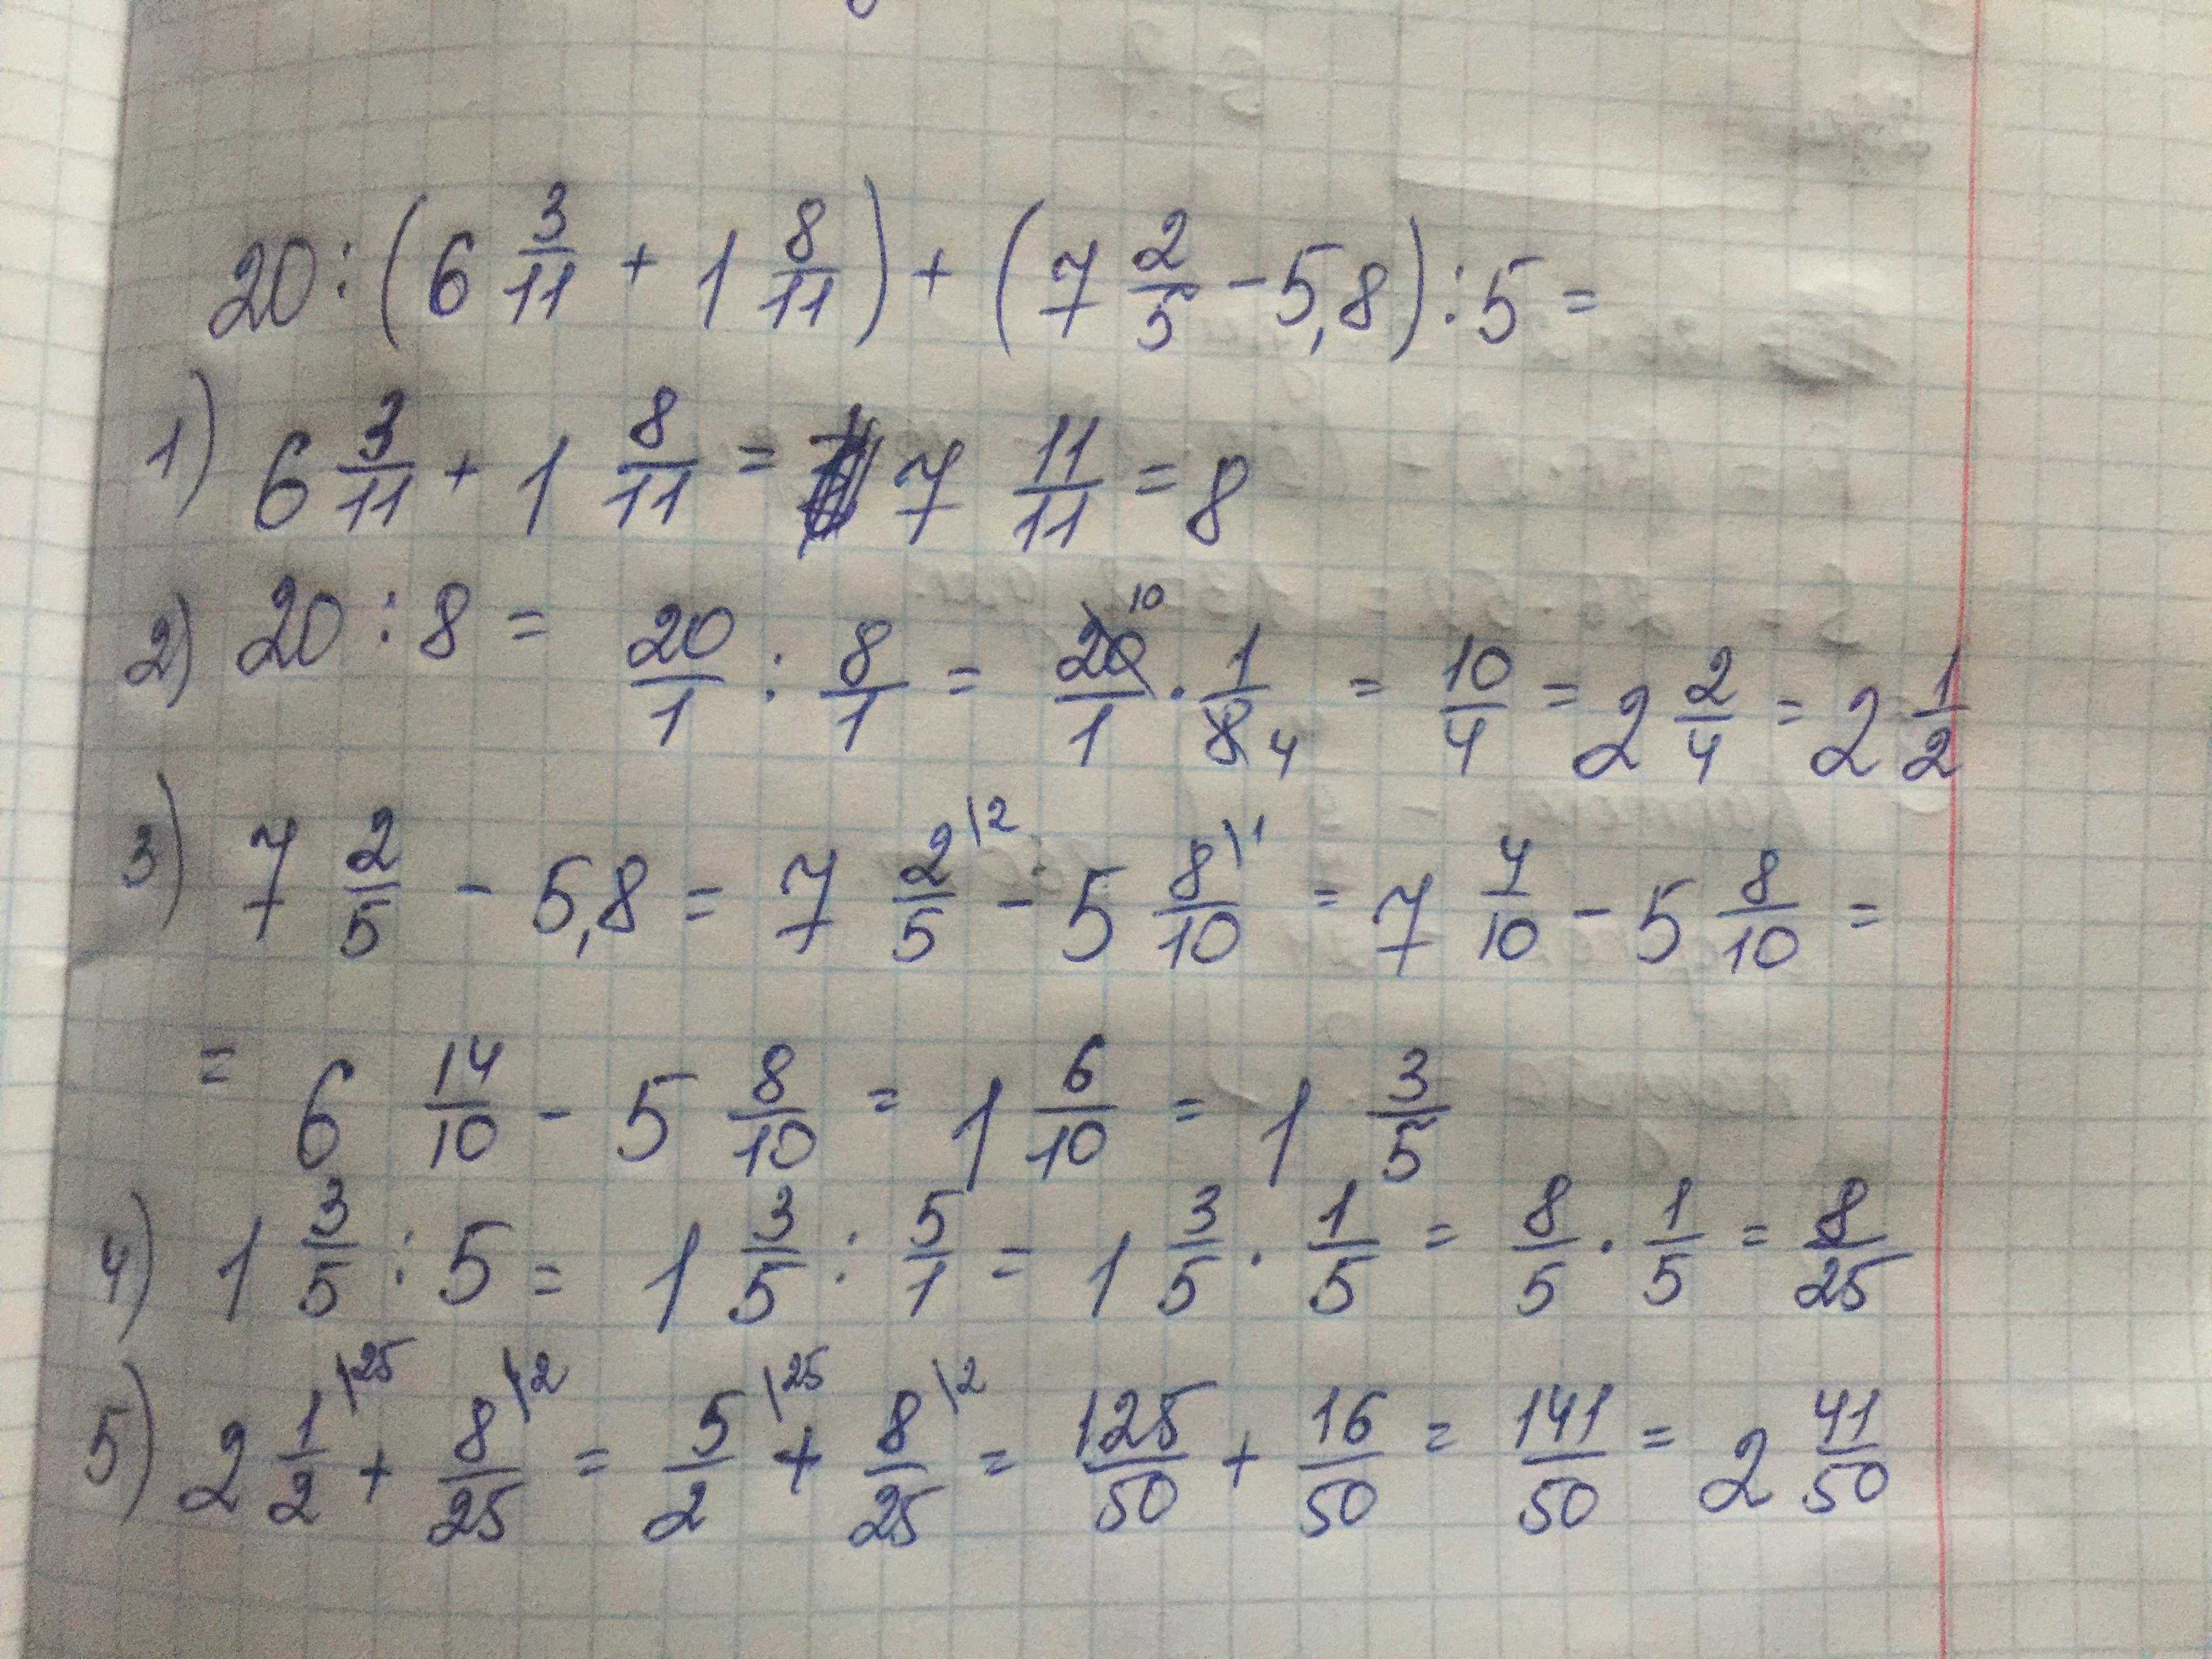 20 : (6 3/11 + 1 8/11) + (7 2/5 - 5,8) : 5 =
1) 6 3/11 + 1 8/11 = 7 11/11 = 8
2) 20 : 8 = 20/1 : 8/1 = 20/1 10 · 1/8 4 = 10/4 = 2 2/4 = 2 1/2
3) 7 2/5 - 5,8 = 7 2/5 \2 - 5 8/10 \1 = 7 4/10 - 5 8/10 =
= 6 14/10 - 5 8/10 = 1 6/10 = 1 3/5
4) 1 3/5 : 5 = 1 3/5 : 5/1 = 1 3/5 · 1/5 = 8/5 · 1/5 = 8/25
5) 2 1/2 \25 + 8/25 \2 = 5/2 \25 + 8/25 \2 = 125/50 + 16/50 = 141/50 = 2 41/50